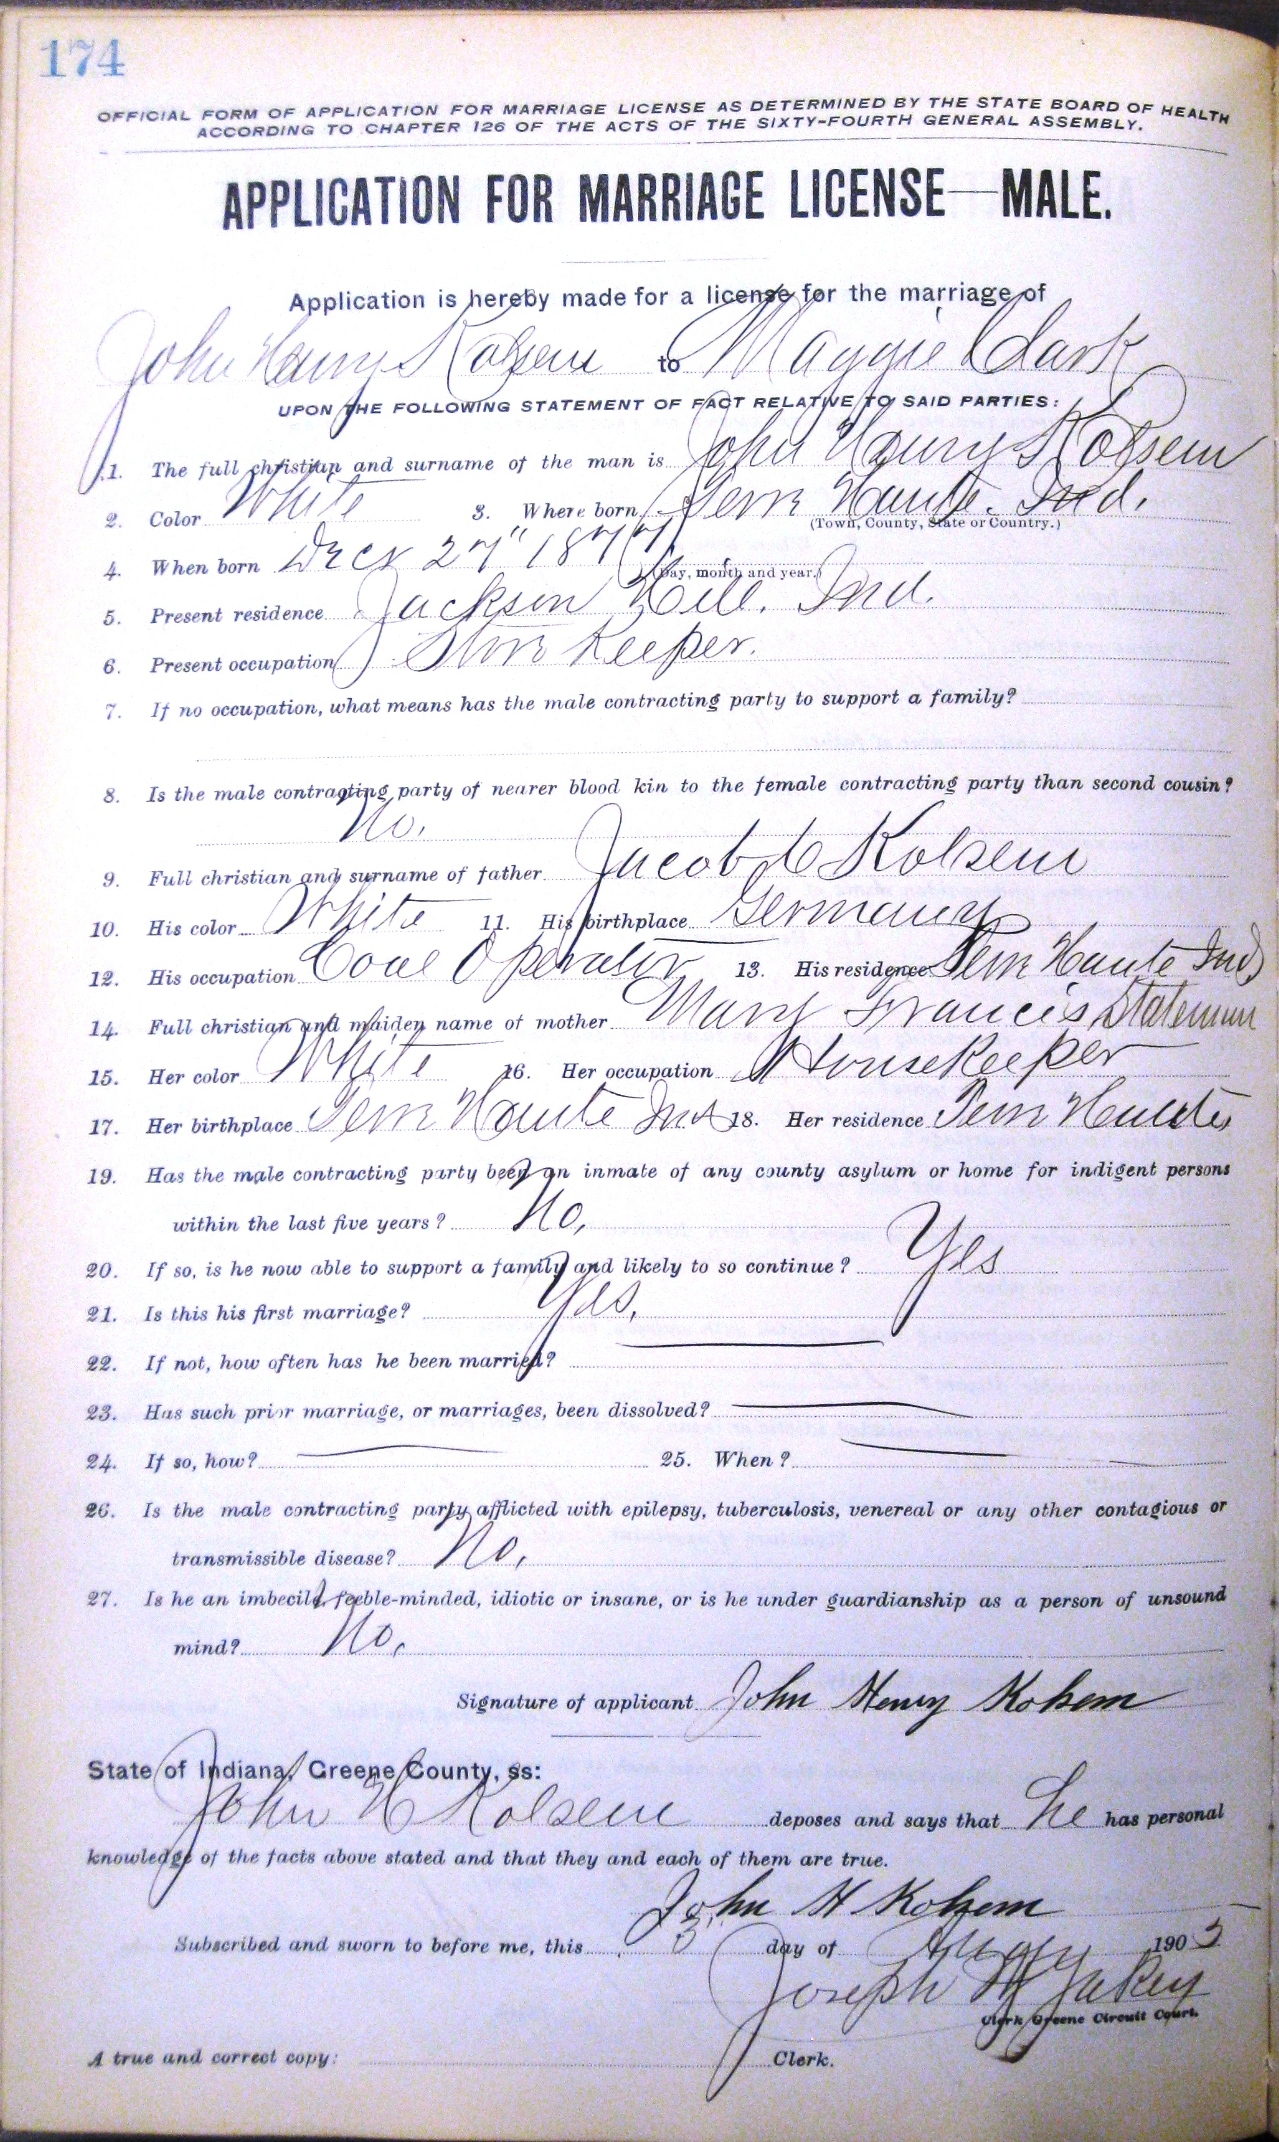 174
OFFICIAL FORM OF APPLICATION FOR MARRIAGE LICENSE AS DETERMINED BY THE STATE BOARD OF HEALTH
ACCORDING TO CHAPTER 126 OF THE ACTS OF THE SIXTY-FOURTH GENERAL ASSEMBLY.
APPLICATION FOR MARRIAGE LICENSE—MALE.
Application is hereby made for a license for the marriage of
John Henry Kolsem to Maggie Clark
UPON THE FOLLOWING STATEMENT OF FACT RELATIVE TO SAID PARTIES:
1. The full christian and surname of the man is John Henry Kolsem
2. Color White 3. Where born Terre Haute. Ind.
(Town, County, State or Country.)
4. When born Dec 27" 1877
(Day, month and year.)
5. Present residence Jackson Hill. Ind.
6. Present occupation Store Keeper.
7. If no occupation, what means has the male contracting party to support a family?
8. Is the male contracting party of nearer blood kin to the female contracting party than second cousin?
No.
9. Full christian and surname of father Jacob C Kolsem
10. His color White 11. His birthplace Germany
12. His occupation Coal Operator 13. His residence Terre Haute Ind
14. Full christian and maiden name of mother Mary Francis
15. Her color White 16. Her occupation Housekeeper
17. Her birthplace Terre Haute Ind 18. Her residence Terre Haute
19. Has the male contracting party been an inmate of any county asylum or home for indigent persons
within the last five years? No,
20. If so, is he now able to support a family and likely to so continue? Yes
21. Is this his first marriage? Yes,
22. If not, how often has he been married?
23. Has such prior marriage, or marriages, been dissolved?
24. If so, how? 25. When?
26. Is the male contracting party afflicted with epilepsy, tuberculosis, venereal or any other contagious or
transmissible disease? No,
27. Is he an imbecile, feeble-minded, idiotic or insane, or is he under guardianship as a person of unsound
mind? No,
Signature of applicant John Henry Kolsem
State of Indiana, Greene County, ss:
John H Kolsem deposes and says that he has personal
knowledge of the facts above stated and that they and each of them are true.
John H Kolsem
Subscribed and sworn to before me, this 3 day of Aug 1905
Joseph
Clerk Greene Circuit Court.
A true and correct copy: Clerk.